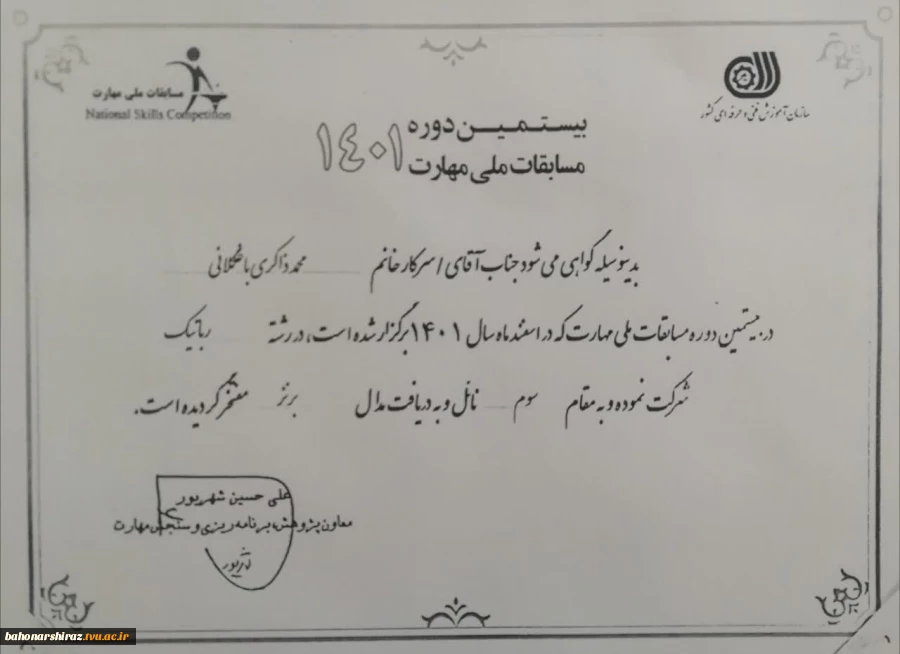 مسابقات ملی مهارت
National Skills Competition
سازمان آموزش فنی و حرفه ای کشور
بیستمین دوره
مسابقات ملی مهارت ۱۴۰۱
بدینوسیله گواهی می شود جناب آقای / سرکار خانم محمد ذاکری باغکلانی
در بیستمین دوره مسابقات ملی مهارت که در اسفند ماه سال ۱۴۰۱ برگزار شده است، در رشته رباتیک
شرکت نموده و به مقام سوم نائل و به دریافت مدال برنز مفتخر گردیده است.
علی حسین شهریور
معاون پژوهش، برنامه ریزی و سنجش مهارت
bahonarshiraz.tvu.ac.ir
۱